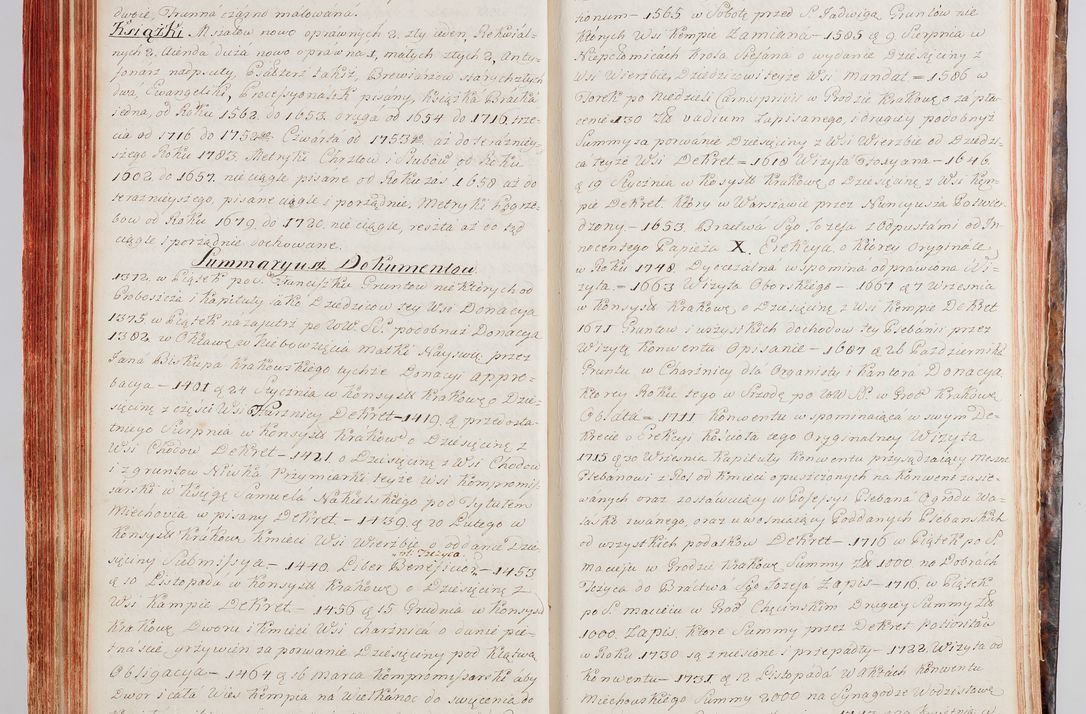 dwoie, Trunna czarno malowana.
Książki Mszałow nowo oprawnych 2. zły ieden, Rekwial=
nych 2. Aienda duża nowo oprawna 1, małych złych 2, Anty=
fonarz nadpsuty, Psałterz takiż, Brewiarzow starych złych
dwa, Ewangeliki, Processyonalik pisany, Książka Bracka
iedna, od Roku 1562. do 1653. druga od 1654 do 1716. trze=
cia od 1716 do 1752. Czwarta od 1753. aż do teraźniey=
szego Roku 1783. Metryki Chrztow i Slubow od Roku
1602. do 1657. nie ciągle pisane od Roku zas 1658 aż do
teraznieyszego, pisane ciągle i porządnie, Metryki Pogrze=
bow od Roku 1679. do 1720. nie ciągle, reszta aż do tąd
ciągle i porządnie dochowane.
Summaryusz Dokumentow
1372. w Piątek po S. Franciszku Gruntow niektórych od
Proboszcza i Kapituły iako Dziedzicow tey Wsi Donacya
1375. w Piątek nazajutrz po WW. SS. podobnaż Donacya
1382. w Oktawę Wniebowzięcia Matki Nayswię. przez
Jana Biskupa Krakowskiego tychże Donacyi appro=
bacya – 1401 d. 24 Stycznia w Konsyst. Krakows. o Dzie=
sięcinę z części Wsi Charznicy Dekret – 1419. d. przedosta=
tniego Sierpnia w Konsyst. Krakows. o Dziesięcinę z
Wsi Chodow Dekret – 1421 o Dziesięcinę z Wsi Chodow
i z gruntow Niwka Przymiarki teyże Wsi kompromis=
sarski w Księgę Samuela Nakielskiego pod Tytułem
Miechovia wpisany Dekret – 1439. d. 20 Lutego w
Konsyst. Krakows. Kmieci Wsi Wierzbie o oddanie Dzie=
sięciny Submissya – 1440. Liber Beneficior. – 1453
d. 10 Listopada w Konsyst. Krakows. o Dziesięcinę z
Wsi Kampie Dekret – 1456 d. 15 Grudnia w Konsyst.
Krakows. Dworu i Kmieci Wsi Charznica o danie pie=
tnaście grzywien za porwanie Dziesięciny pod Klątwą
Obligacya – 1464 d. 16 marca Kompromissarski aby
Dwor i cała Wieś Kempia na Wielkanoc do swięcenia do
1565 w Sobotę przed S. Jadwigą Gruntow nie
których Wsi Kempie Zamiana – 1585 d. 9 Sierpnia w
Niepołomicach Krola Stefana o wydanie Dziesięciny z
Wsi Wierzbie, Dziedzicowi teyże Wsi Mandat = 1586 w
Wtorek po Niedzieli Carnisprivii w Grodzie Krakows. o zapła=
cenie 130 Zł. vadium Zapisanego, i drugiey podobnyż
Summy za porwanie Dziesięciny z Wsi Wierzbie od Dziedzi=
ca teyże Wsi Dekret = 1618 Wizyta – 1646.
d. 19 Stycznia w Konsyst. Krakows. o Dziesięcinę z Wsi Kem=
pie Dekret, który w Warszawie przez Nuncyusza potwier=
dzony. – 1653. Bractwa Sgo Jozefa z odpustami od In=
nocentego Papieża X. Erekcya, o którey Oryginale
w Roku 1748. Dyecezalna wspomina odprawiona Wi=
zyta. = 1663 Wizyta Oborskiego – 1667 d. 7 Września
w Konsyst. Krakows. o Dziesięcinę z Wsi Kempie Dekret
1671 Gruntow i wszystkich dochodow tey Plebanii przez
Wizytę Konwentu Opisanie – 1687 d. 26 Października
Gruntu w Charznicy dla Organisty i Kantora Donacya
którey Roku tego w Srzodę po WW. SS. w Grod. Krakows.
Oblata = 1711 Konwentu wspominaiąca w swym De=
krecie o Erekcyi Kościoła cego Oryginalney Wizyta
1715 d. 20 Września Kapituły Konwentu przysądzaiący Meszne
Plebanowi z Rol od Kmieci opuszczonych na Konwent zasie=
wanych oraz zostawuiący w Possessyi Plebana Ogrodu Wa=
laski zwanego, oraz uwolniaiący Poddanych Plebańskich
od wszystkich podatkow Dekret – 1716 w Piątek po S.
Macieiu w Grodzie Krakows. Summy Zł. 1000 na Dobrach
Tczyca do Bractwa Sgo Jozefa Zapis. – 1716. w Piątek
po S. Macieiu w Grod. Chęcinskim Drugiey Summy Zł.
1000. Zapis, które Summy przez Dekret Potioritatis
w Roku 1730 są zniesione i przepadły – 1722. Wizyta od
Konwentu – 1731 d. 12 Listopada w Aktach Konwentu
Miechowskiego Summy 2000 na Synagodze Wodzisławs.